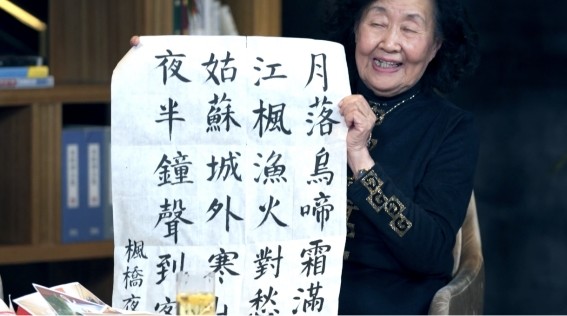 月落烏啼霜滿
江楓漁火對愁
姑蘇城外寒山
夜半鐘聲到客
楓橋夜